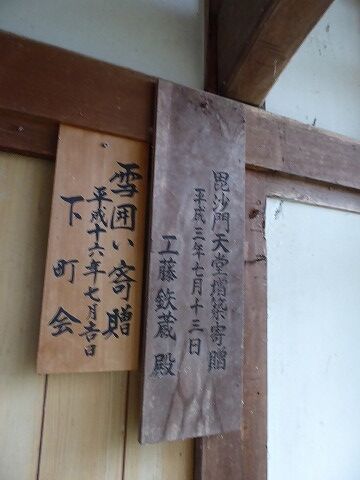 毘沙門天堂増築寄贈
平成三年七月十三日
工藤鉄蔵殿
雪囲い寄贈
平成十六年七月吉日
下町会